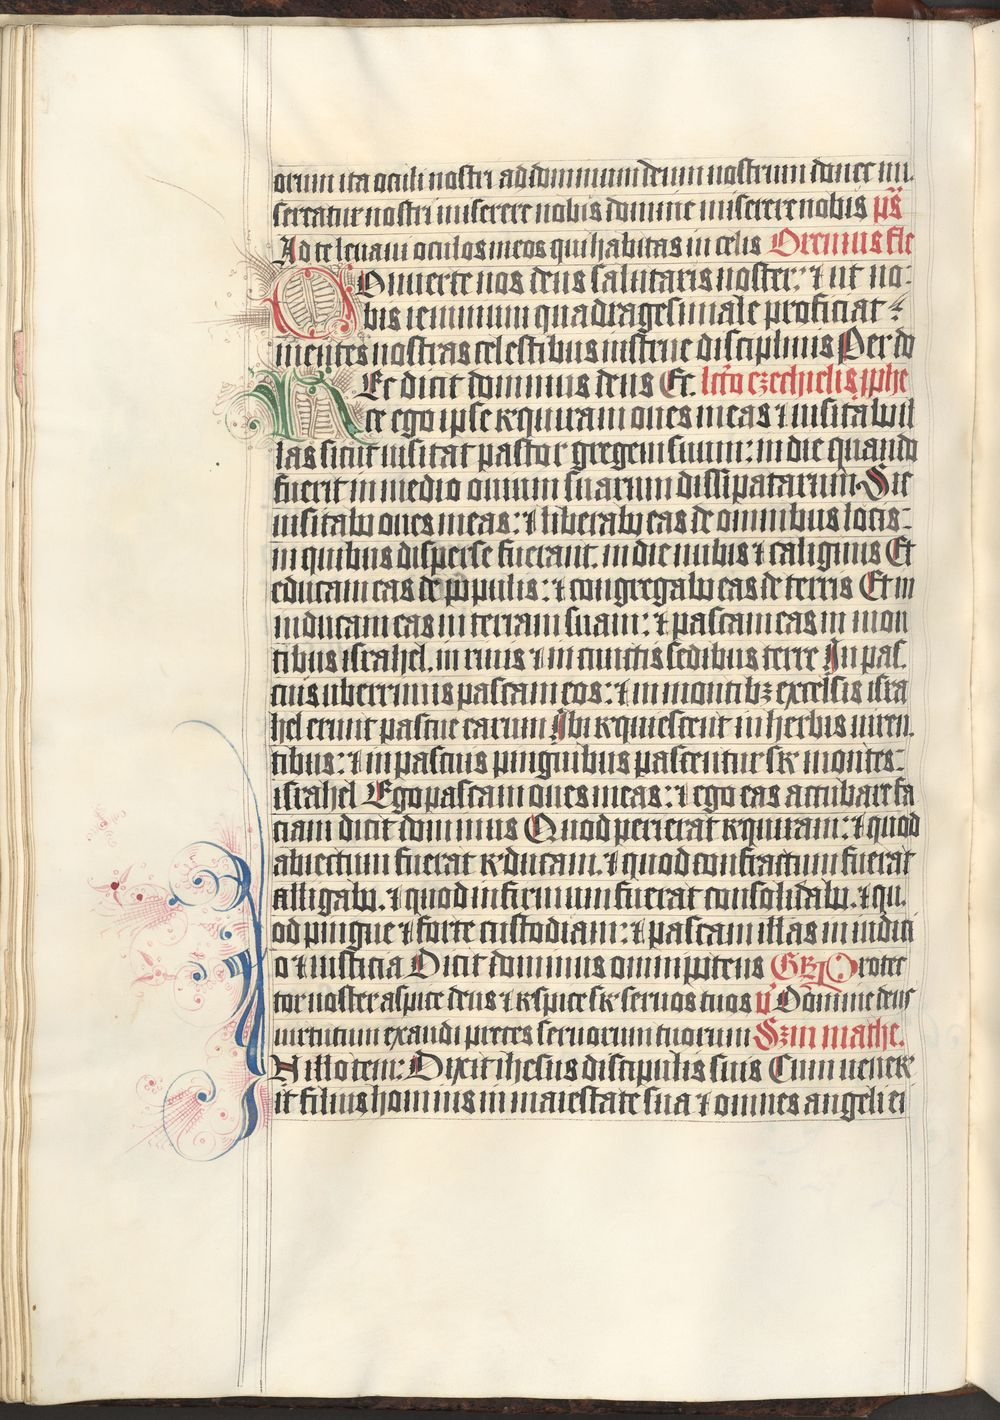 orum ita oculi nostri ad dominum deum nostrum donec mi.
sereatur nostri miserere nobis domine miserere nobis ps
Ad te levavi oculos meos qui habitas in celis Oremus fle
COnuerte nos deus salutaris noster: ⁊ ut no:
bis ieiunium quadragesimale proficiat
mentes nostras celestibus instrue disciplinis Per do
HEc dicit dominus deus Ec. lcto ezechielis pphe
ce ego ipse requiram oues meas ⁊ uisitabo il
las sicut uisitat pastor gregem suum: in die quando
fuerit in medio ouium suarum dissipatarum. Sic
uisitabo oues meas: ⁊ liberabo eas de omnibus locis:
in quibus disperse fuerant. in die nubis ⁊ caliginis Et
educam eas de populis: ⁊ congregabo eas de terris Et in
inducam eas in terram suam: ⁊ pascam eas in mon
tibus israhel. in riuis ⁊ in cunctis sedibus terre In pas.
cuis uberrimis pascam eos: ⁊ in montibꝫ excelsis isra
hel erunt pascue earum Ibi requiescent in herbis uiren.
tibus: ⁊ in pascuis pinguibus pascentur sr montes:
israhel Ego pascam oues meas: ⁊ ego eas accubare fa
ciam dicit dominus Quod perierat requiram: ⁊ quod
abiectum fuerat reducam. ⁊ quod confractum fuerat
alligabo. ⁊ quod infirmum fuerat consolidabo. ⁊ qu.
od pingue ⁊ forte custodiam: ⁊ pascam illas in iudici
o ⁊ iusticia Dicit dominus omnipotens GR Protec
tor noster aspice deus ⁊ respice sr seruos tuos v Domine deus
uirtutum exaudi preces seruorum tuorum Scdm mathe.
IN illo tem: Dixit ihesus discipulis suis Cum uener
it filius hominis in maiestate sua ⁊ omnes angeli ei